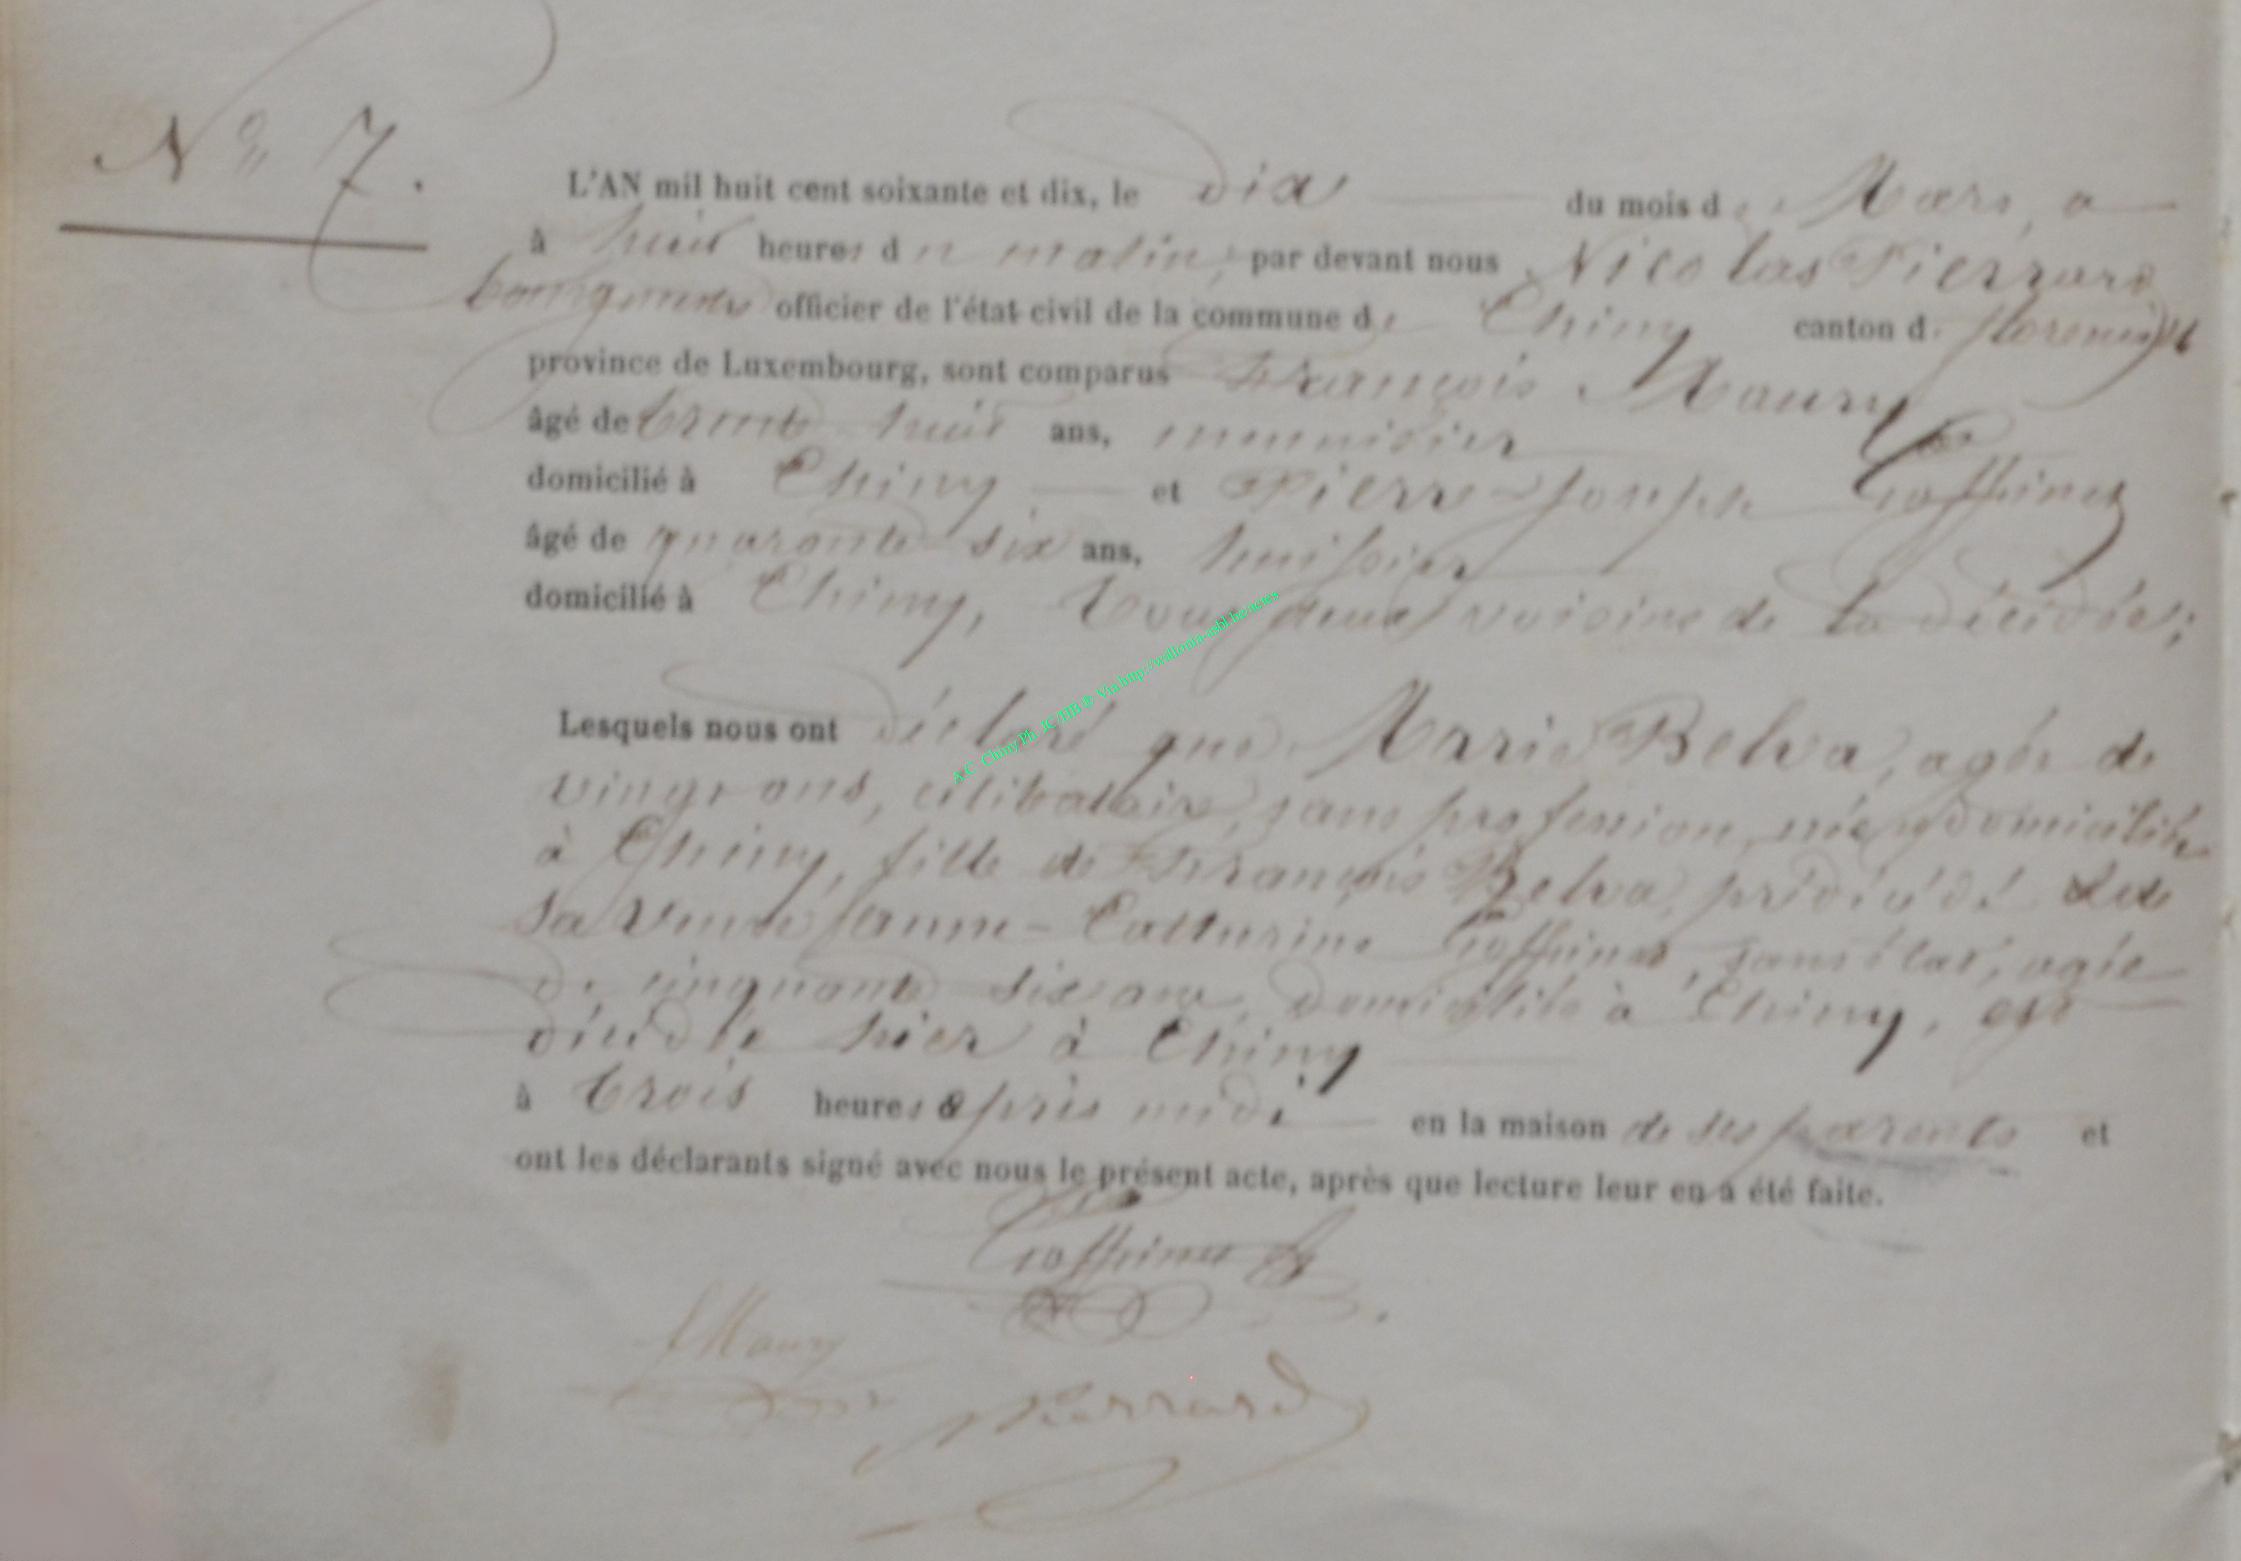 N° 7.
L'AN mil huit cent soixante et dix, le dix du mois de Mars, a
à huit heures du matin, par devant nous Nicolas Pierrard
bourgmestre officier de l'état civil de la commune de Chiny canton de florenville
province de Luxembourg, sont comparus François Maury
âgé de trente huit ans, menuisier
domicilié à Chiny et Pierre-Joseph Goffinet
âgé de quarante six ans, huissier
domicilié à Chiny, tous deux voisins de la décédée;
Lesquels nous ont déclaré que Marie Belva, agée de
vingt ans, célibataire, sans profession, née et domiciliée
à Chiny, fille de François Belva, prédécédé & de
sa veuve Jeanne-Catherine Goffinet, sans état, agée
de cinquante six ans, domiciliée à Chiny, est
décédée hier à Chiny
à trois heures après midi en la maison de ses parents et
ont les déclarants signé avec nous le présent acte, après que lecture leur en a été faite.
Goffinet
fMaury
Pierrard
A.C. Chiny Ph. JC/HB ® Via http://wallonia-asbl.be/actes